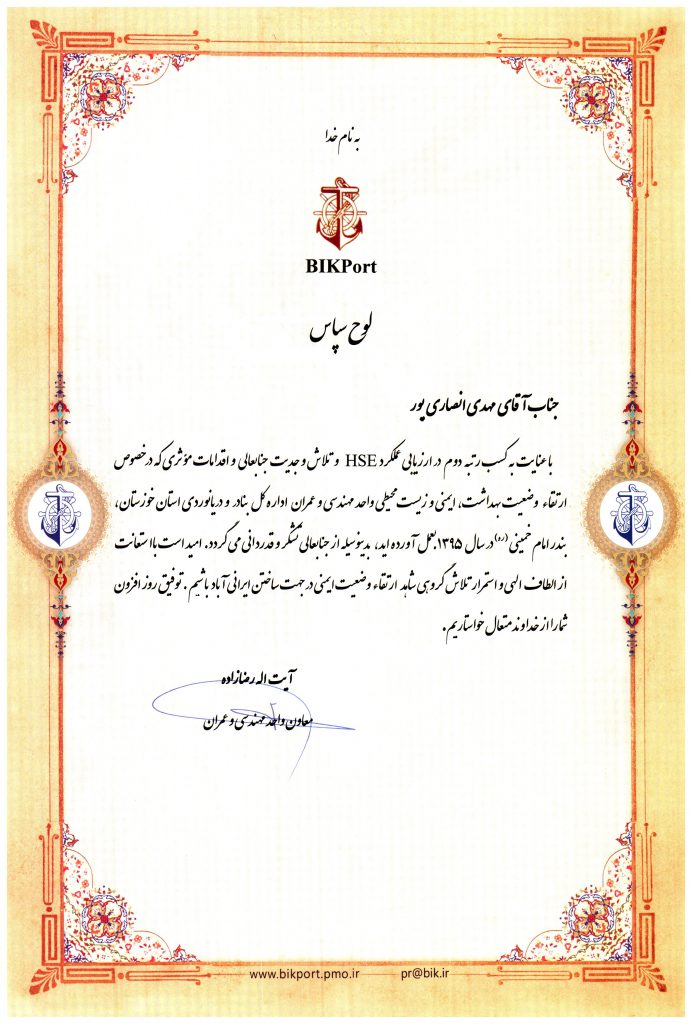 به نام خدا
BIKPort
لوح سپاس
جناب آقای مهدی انصاری پور
با عنایت به کسب رتبه دوم در ارزیابی عملکرد HSE و تلاش و جدیت جنابعالی و اقدامات مؤثری که در خصوص
ارتقاء وضعیت بهداشت، ایمنی و زیست محیطی واحد مهندسی و عمران اداره کل بنادر و دریانوردی استان خوزستان،
بندر امام خمینی (ره) در سال ۱۳۹۵ بعمل آورده اید، بدینوسیله از جنابعالی تشکر و قدردانی می گردد. امید است با استعانت
از الطاف الهی و استمرار تلاش گروهی شاهد ارتقاء وضعیت ایمنی در جهت ساختن ایرانی آباد باشیم. توفیق روز افزون
شما را از خداوند متعال خواستاریم.
آیت اله رضازاده
معاون واحد مهندسی و عمران
www.bikport.pmo.ir pr@bik.ir